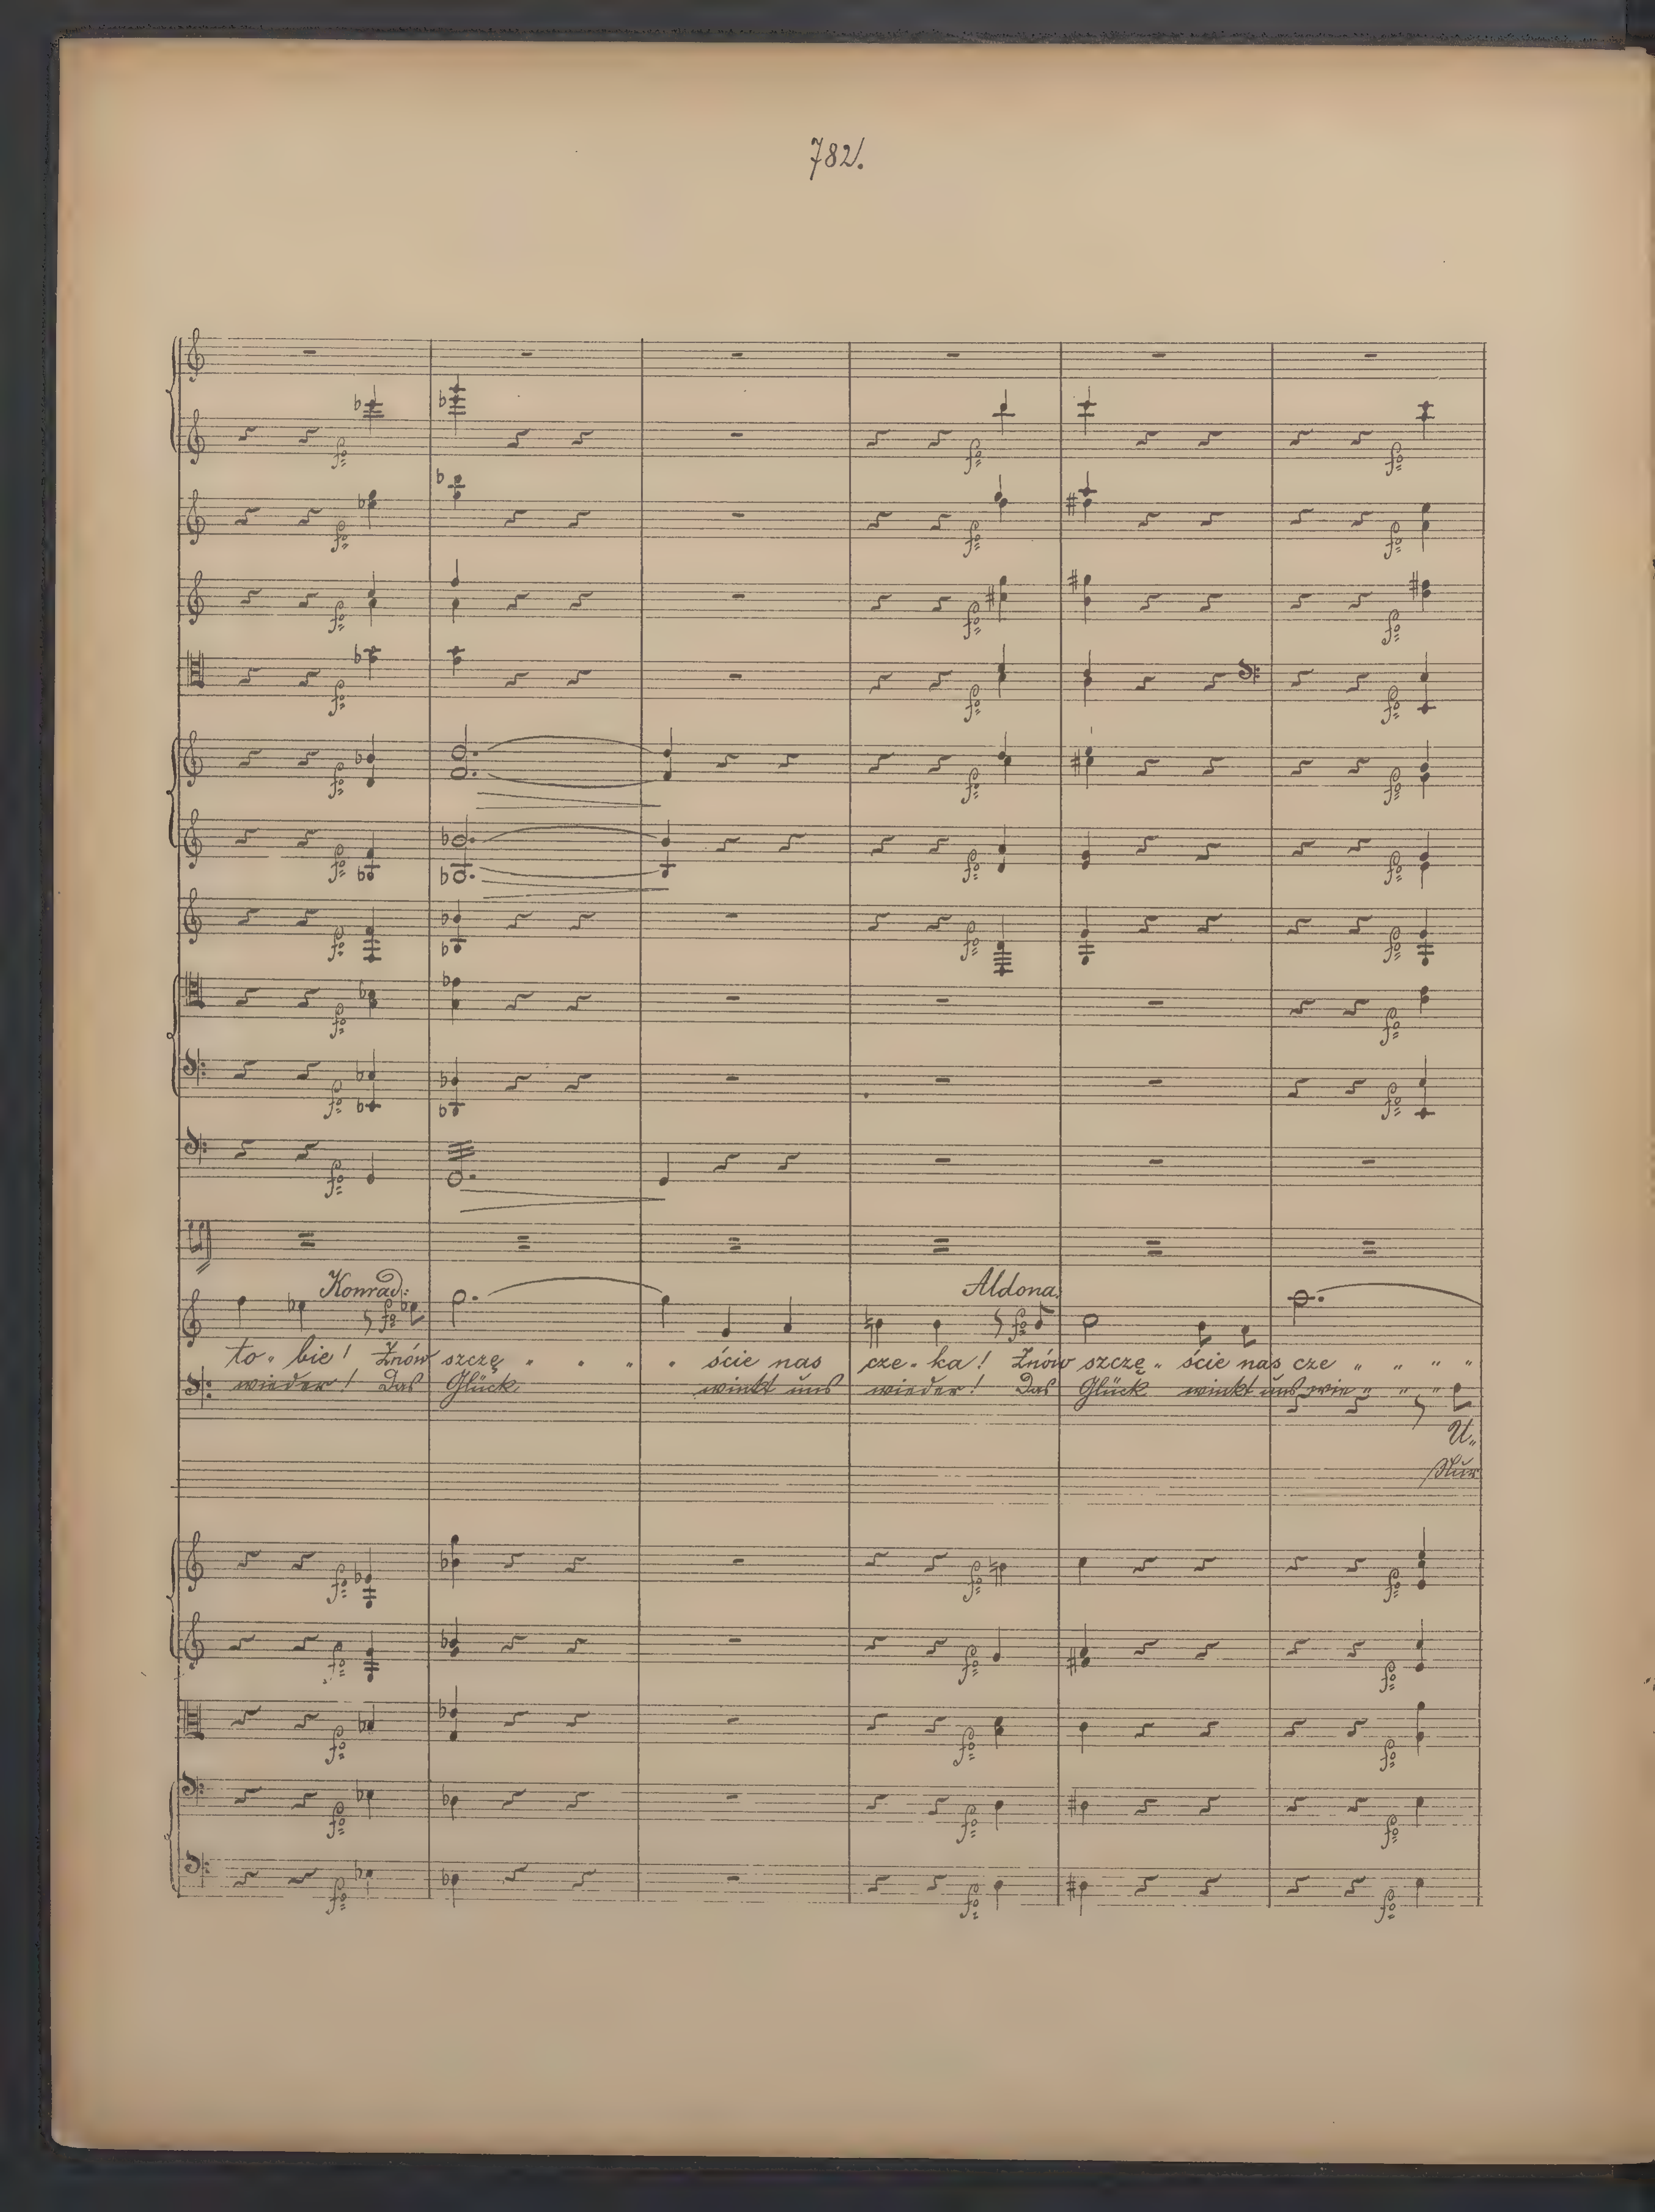 782.
Konrad: Aldona.
to - bie! Znów szczę - - - - ście nas cze - ka! Znów szczę - ście nas cze " " " "
wieder! Das Glück winkt uns wieder! Das Glück winkt uns wie " " "
U "
Nur